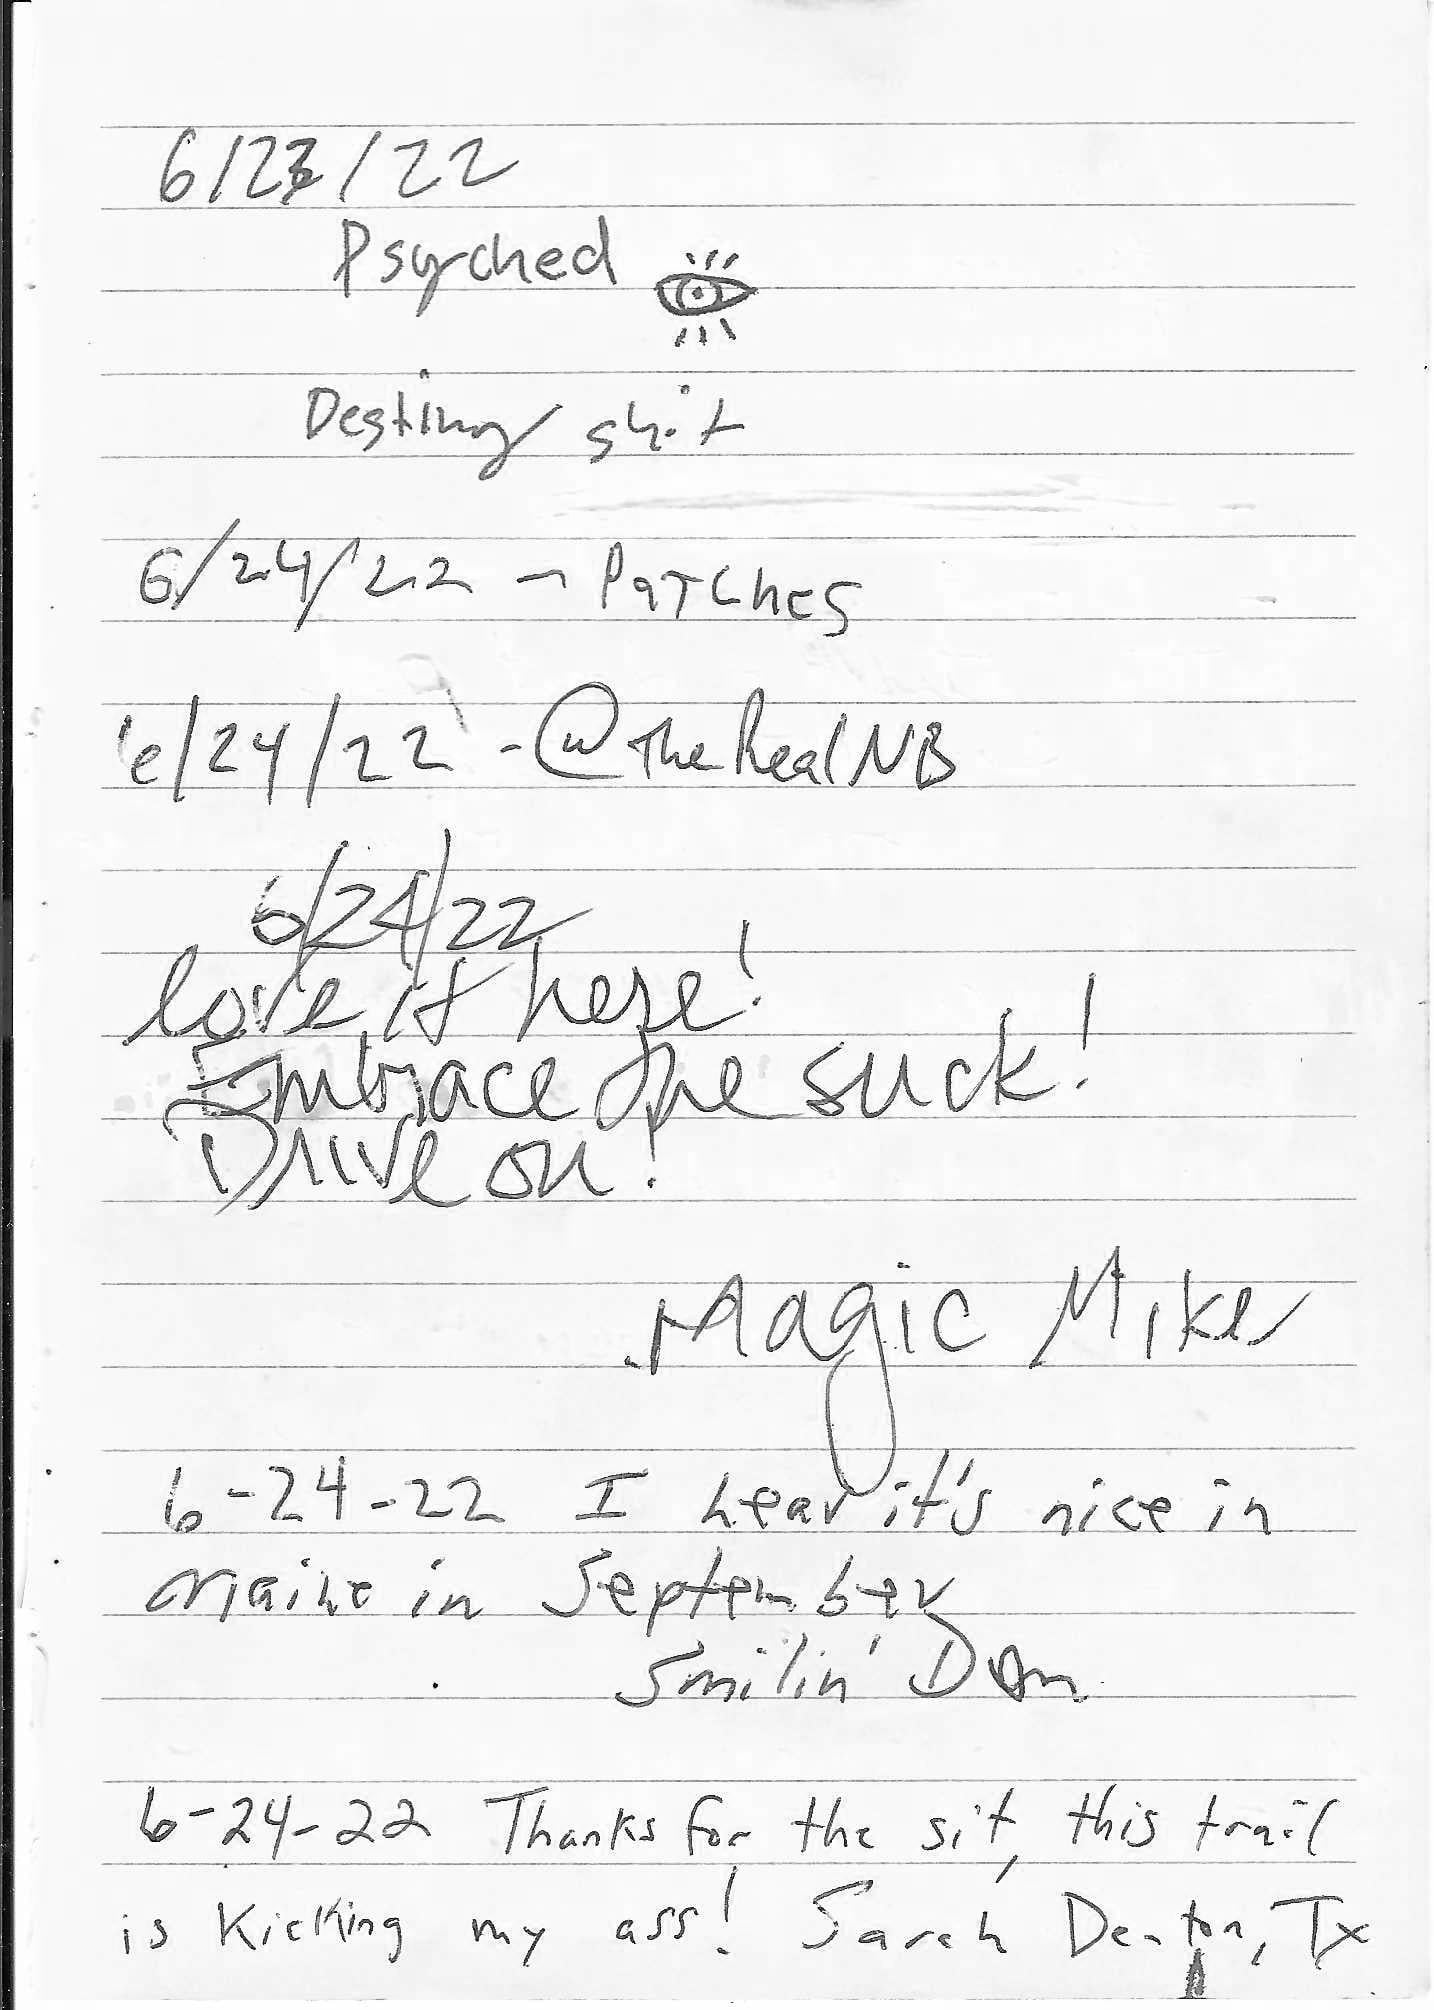 6/23/22
Psyched
Destiny shit
6/24/22 - Patches
6/24/22 - @TheRealNB
6/24/22
love it here!
Embrace the suck!
Drive on!
Magic Mike
6-24-22 I hear it's nice in
Maine in September
Smilin' Dom
6-24-22 Thanks for the sit, this trail
is Kicking my ass! Sarah Denton, Tx